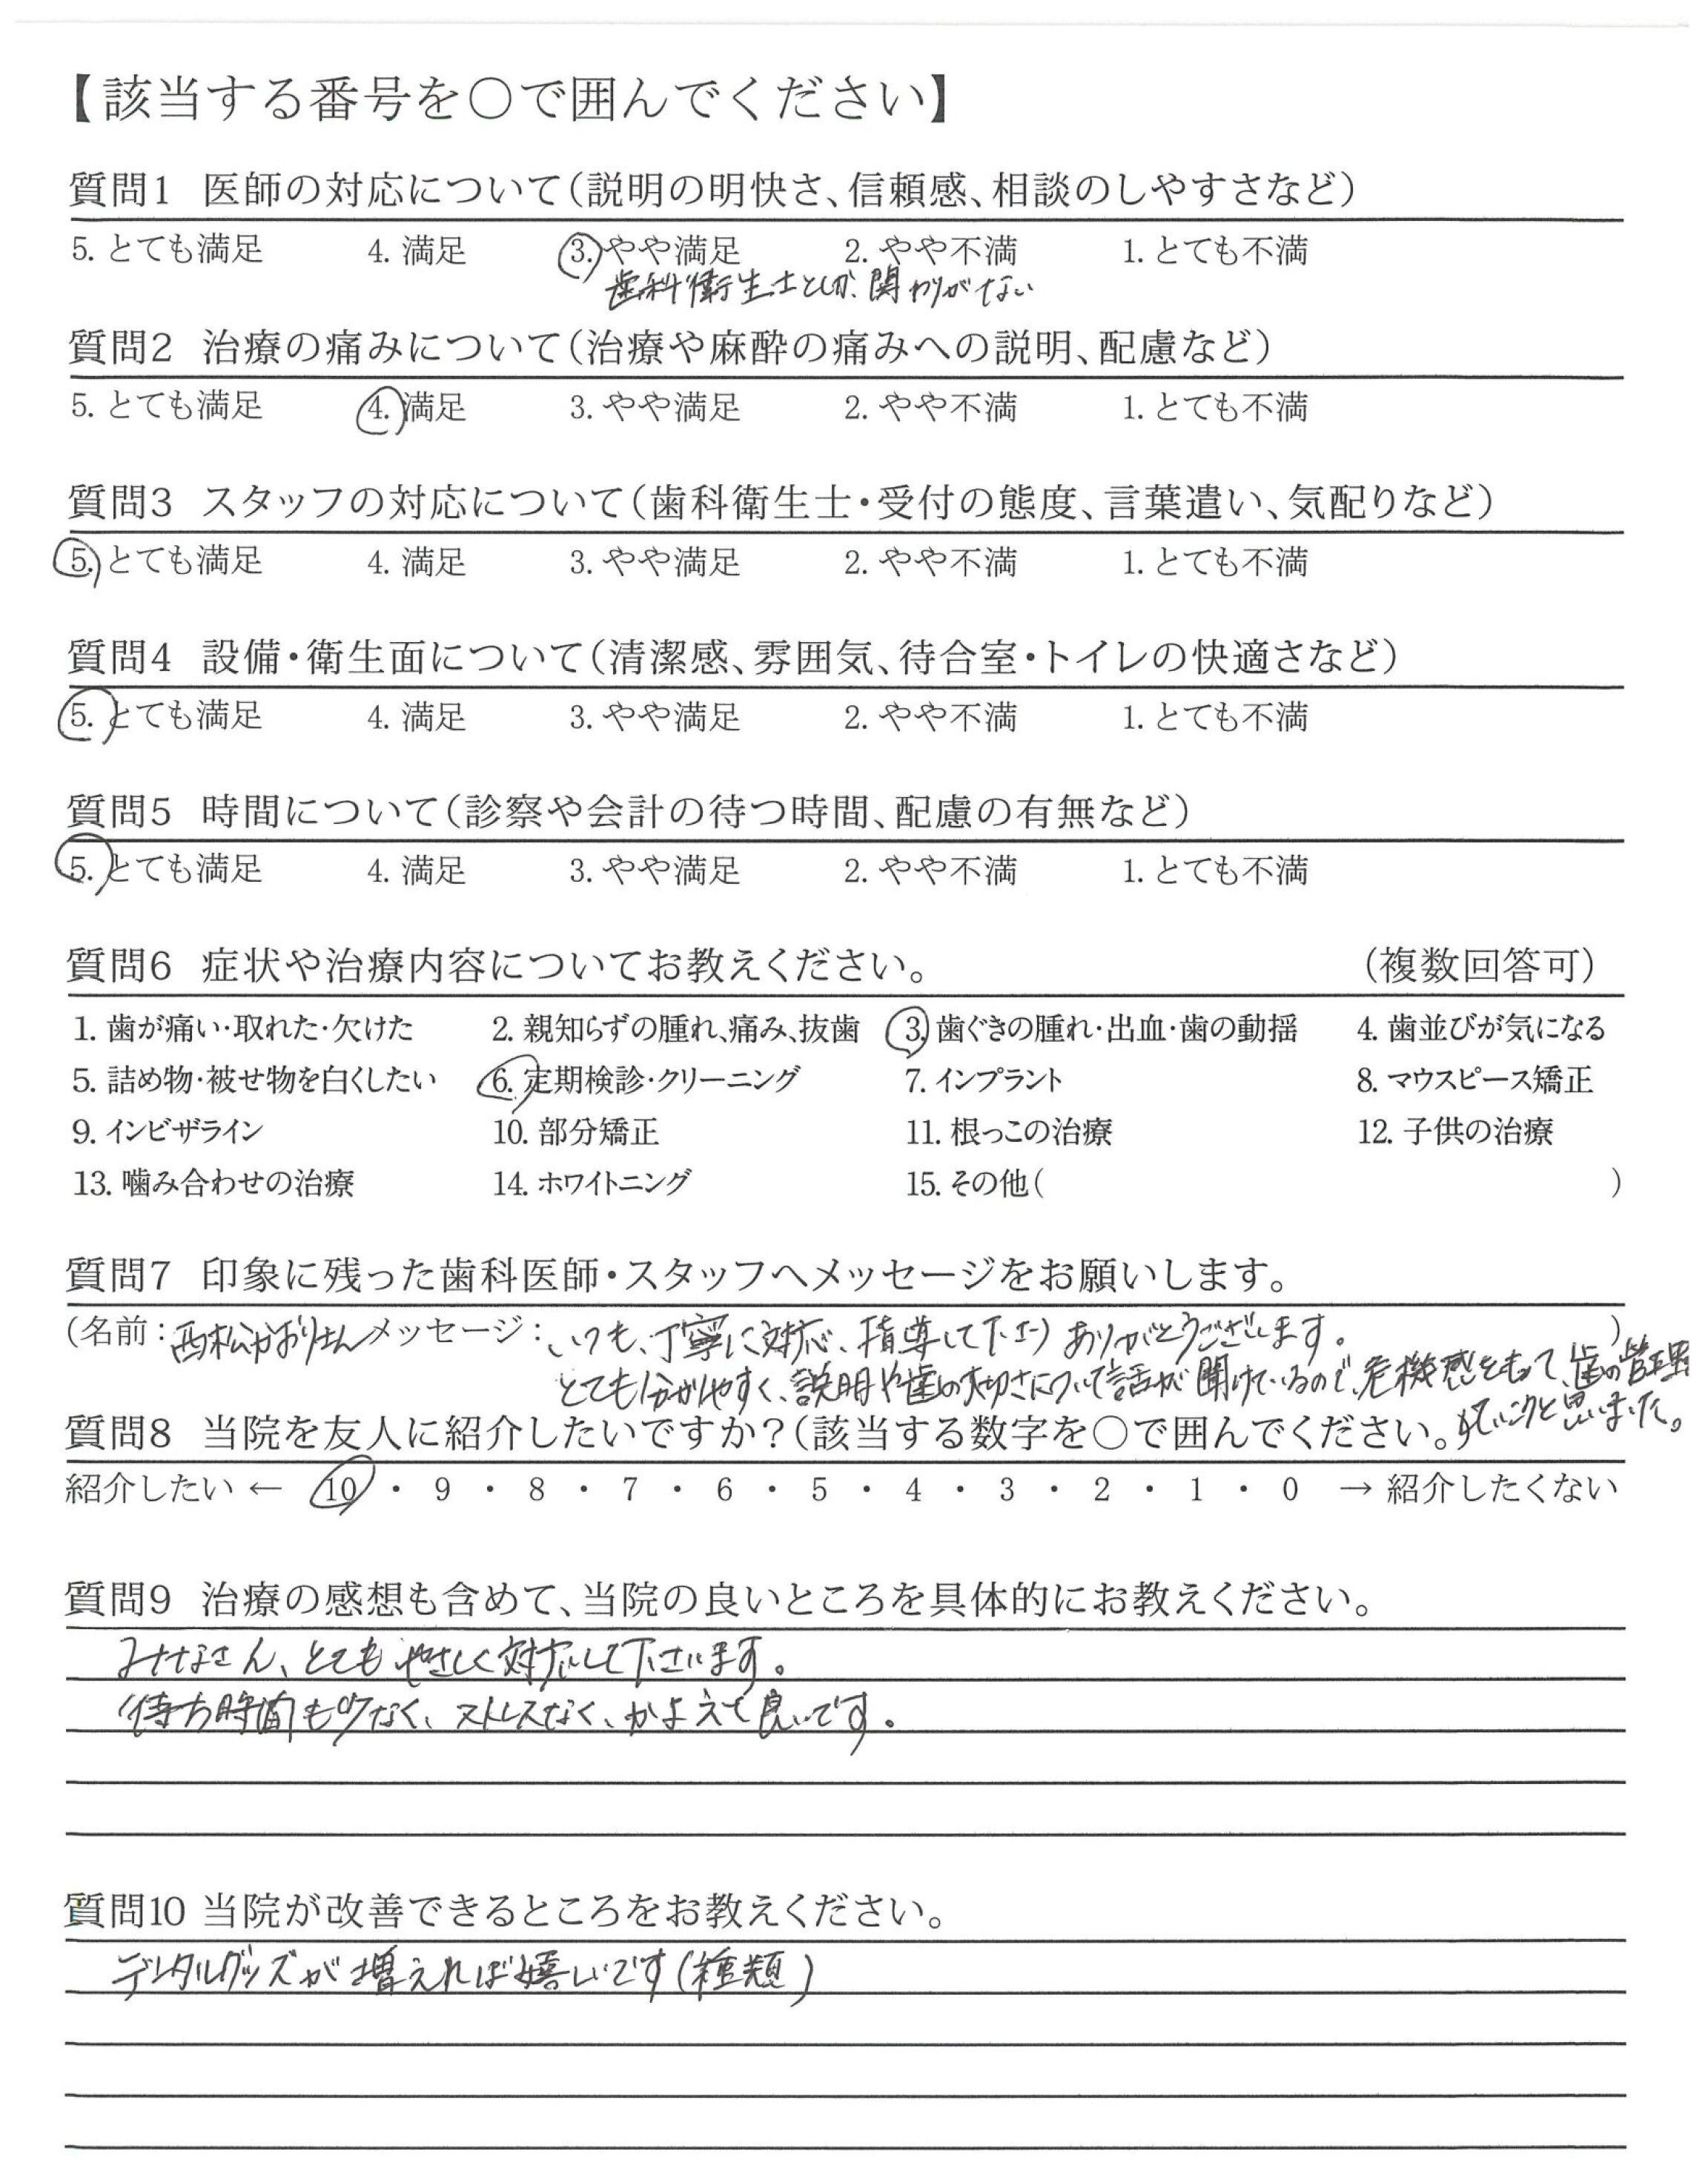 【該当する番号を○で囲んでください】
質問1 医師の対応について(説明の明快さ、信頼感、相談のしやすさなど)
5. とても満足 4. 満足 3. やや満足 2. やや不満 1. とても不満
歯科衛生士としか、関わりがない
質問2 治療の痛みについて(治療や麻酔の痛みへの説明、配慮など)
5. とても満足 4. 満足 3. やや満足 2. やや不満 1. とても不満
質問3 スタッフの対応について(歯科衛生士・受付の態度、言葉遣い、気配りなど)
5. とても満足 4. 満足 3. やや満足 2. やや不満 1. とても不満
質問4 設備・衛生面について(清潔感、雰囲気、待合室・トイレの快適さなど)
5. とても満足 4. 満足 3. やや満足 2. やや不満 1. とても不満
質問5 時間について(診察や会計の待つ時間、配慮の有無など)
5. とても満足 4. 満足 3. やや満足 2. やや不満 1. とても不満
質問6 症状や治療内容についてお教えください。 (複数回答可)
1. 歯が痛い・取れた・欠けた 2. 親知らずの腫れ、痛み、抜歯 3. 歯ぐきの腫れ・出血・歯の動揺 4. 歯並びが気になる
5. 詰め物・被せ物を白くしたい 6. 定期検診・クリーニング 7. インプラント 8. マウスピース矯正
9. インビザライン 10. 部分矯正 11. 根っこの治療 12. 子供の治療
13. 噛み合わせの治療 14. ホワイトニング 15. その他( )
質問7 印象に残った歯科医師・スタッフへメッセージをお願いします。
(名前:西松かおりさん メッセージ:いつも、丁寧に対応、指導して下さり ありがとうございます。 )
とても分かりやすく、説明や歯の大切さについて話が聞けているので、危機感をもって、歯の管理
していこうと思いました。
質問8 当院を友人に紹介したいですか?(該当する数字を○で囲んでください。)
紹介したい ← 10 ・ 9 ・ 8 ・ 7 ・ 6 ・ 5 ・ 4 ・ 3 ・ 2 ・ 1 ・ 0 → 紹介したくない
質問9 治療の感想も含めて、当院の良いところを具体的にお教えください。
みなさん、とても やさしく対応して下さいます。
待ち時間も少なく、ストレスなく、かよえて良いです。
質問10 当院が改善できるところをお教えください。
デンタルグッズが増えれば嬉しいです(種類)